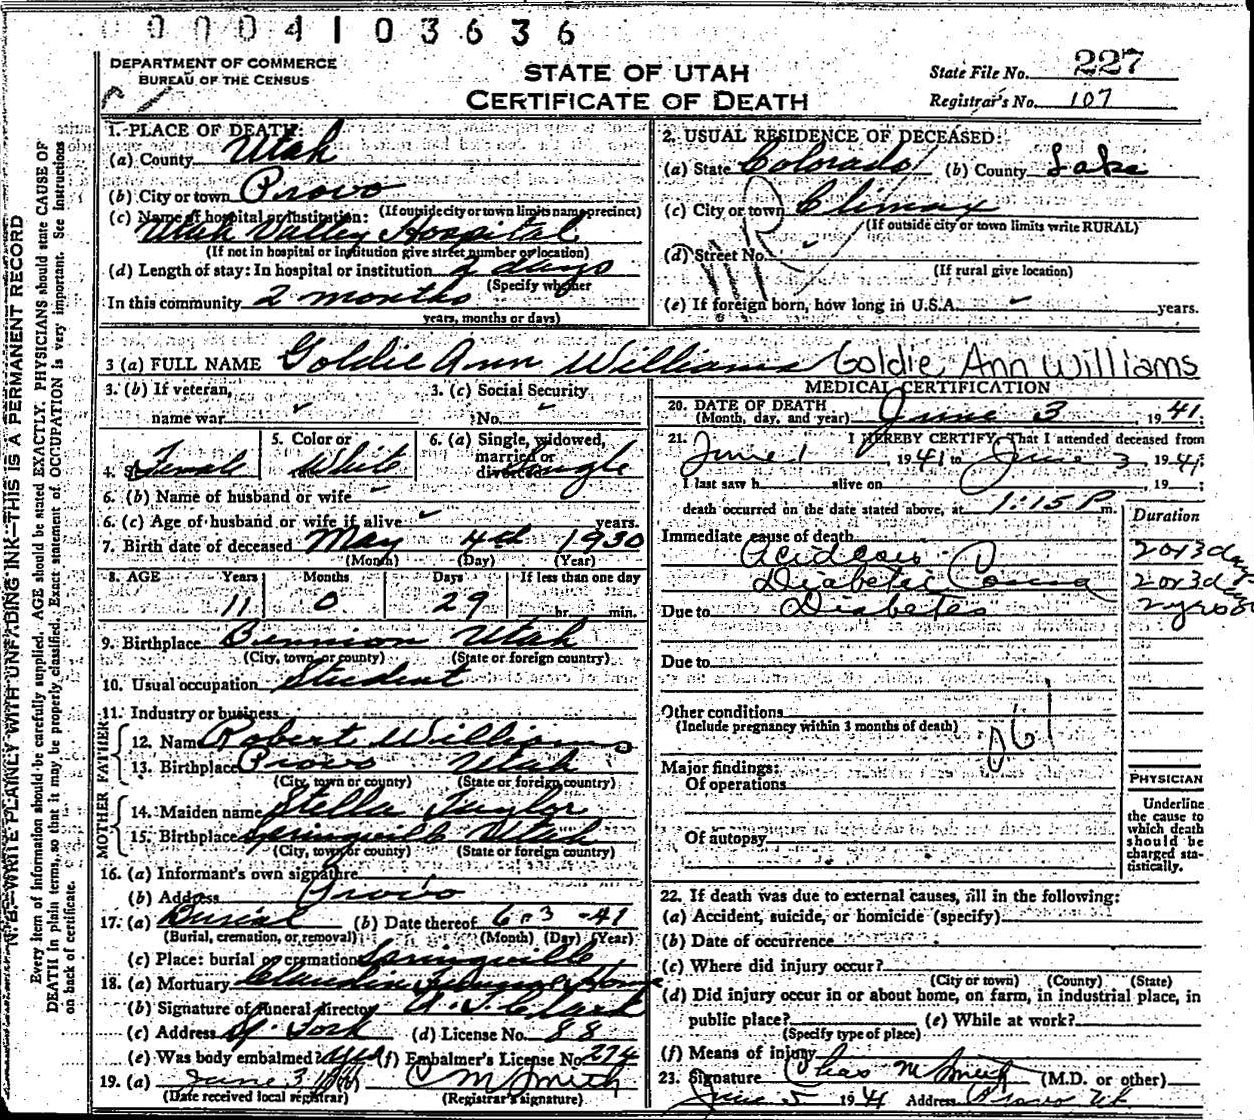 0004103636
DEPARTMENT OF COMMERCE
BUREAU OF THE CENSUS
STATE OF UTAH
CERTIFICATE OF DEATH
State File No. 227
Registrar's No. 107
N. B.—WRITE PLAINLY WITH UNFADING INK—THIS IS A PERMANENT RECORD
Every item of information should be carefully supplied. AGE should be stated EXACTLY. PHYSICIANS should state CAUSE OF
DEATH in plain terms, so that it may be properly classified. Exact statement of OCCUPATION is very important. See instructions
on back of certificate.
1. PLACE OF DEATH:
(a) County Utah
(b) City or town Provo
(c) Name of hospital or institution: (If outside city or town limits name precinct)
Utah Valley Hospital
(If not in hospital or institution give street number or location)
(d) Length of stay: In hospital or institution 2 days
(Specify whether
In this community 2 months
years, months or days)
2. USUAL RESIDENCE OF DECEASED:
(a) State Colorado (b) County Lake
(c) City or town Climax
(If outside city or town limits write RURAL)
(d) Street No.
(If rural give location)
(e) If foreign born, how long in U.S.A. years.
NR
3 (a) FULL NAME Goldie Ann Williams Goldie Ann Williams
3. (b) If veteran, name war
3. (c) Social Security No.
4. Sex Female
5. Color or White
6. (a) Single, widowed, married or divorced Single
6. (b) Name of husband or wife
6. (c) Age of husband or wife if alive years.
7. Birth date of deceased May 4th 1930
(Month) (Day) (Year)
8. AGE Years Months Days If less than one day
11 0 29 hr. min.
9. Birthplace Bennion Utah
(City, town or county) (State or foreign country)
10. Usual occupation Student
11. Industry or business
FATHER
12. Name Robert Williams
13. Birthplace Provo Utah
(City, town or county) (State or foreign country)
MOTHER
14. Maiden name Stella Taylor
15. Birthplace Springville Utah
(City, town or county) (State or foreign country)
16. (a) Informant's own signature
(b) Address Provo
17. (a) Burial (b) Date thereof 6-3-41
(Burial, cremation, or removal) (Month) (Day) (Year)
(c) Place: burial or cremation Springville
18. (a) Mortuary Claudin Funeral Home
(b) Signature of funeral director A. J. Clark
(c) Address (d) License No. 88
(e) Was body embalmed? Yes (f) Embalmer's License No. 274
19. (a) June 3 C M Smith
(Date received local registrar) (Registrar's signature)
MEDICAL CERTIFICATION
20. DATE OF DEATH
(Month, day, and year) June 3, 1941.
21. I HEREBY CERTIFY, That I attended deceased from
June 1 1941 to June 3 1941;
I last saw h alive on , 19 ;
death occurred on the date stated above, at 1:15 P m.
Duration
Immediate cause of death
Acidosis 2 or 3 days
Diabetic Coma 2 or 3 days
Due to Diabetes 2 yrs
Due to
Other conditions
(Include pregnancy within 3 months of death)
061
Major findings:
Of operations
Of autopsy
PHYSICIAN
Underline
the cause to
which death
should be
charged sta-
tistically.
22. If death was due to external causes, fill in the following:
(a) Accident, suicide, or homicide (specify)
(b) Date of occurrence
(c) Where did injury occur?
(City or town) (County) (State)
(d) Did injury occur in or about home, on farm, in industrial place, in
public place? (e) While at work?
(Specify type of place)
(f) Means of injury
23. Signature Chas M Smith (M.D. or other)
June 5 1941 Address Provo Ut